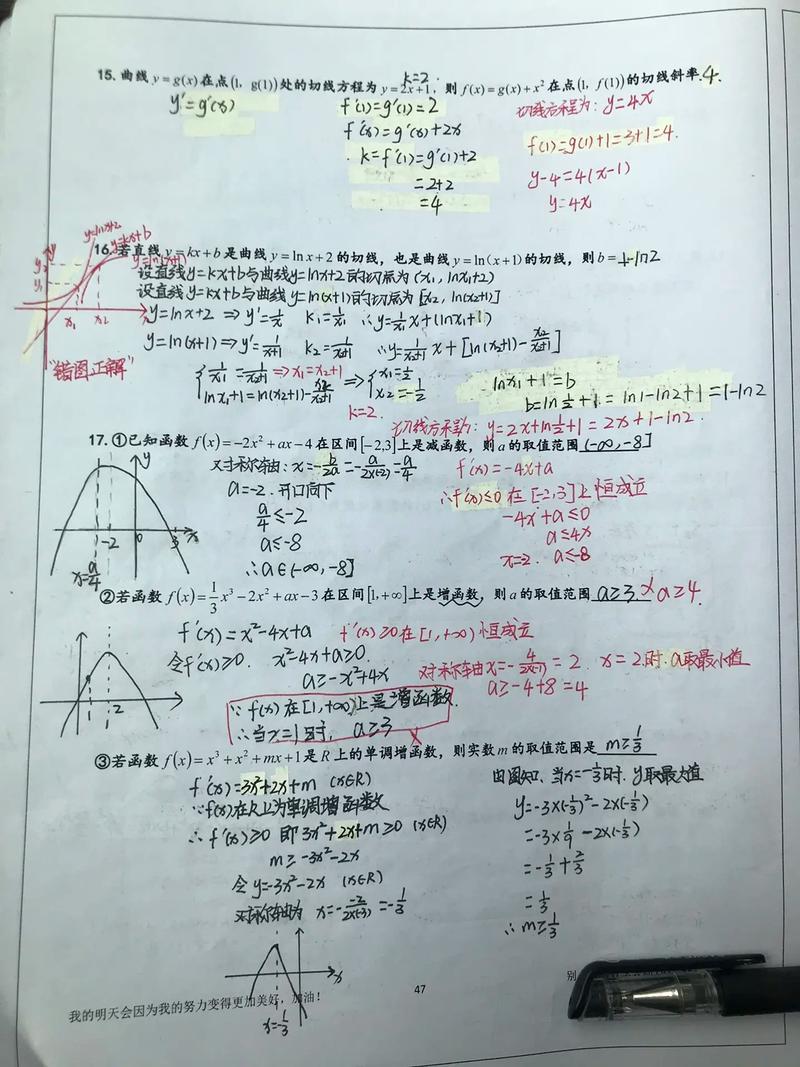 15. 曲线 y = g(x) 在点 (1, g(1)) 处的切线方程为 y = 2x+1, 则 f(x) = g(x) + x² 在点 (1, f(1)) 的切线斜率 4.
k=2.
y'=g'(x)
f'(1)=g'(1)=2
f'(x)=g'(x)+2x
k=f'(1)=g'(1)+2
=2+2
=4
切线方程为: y=4x
f(1)=g(1)+1=3+1=4.
y-4=4(x-1)
y=4x
y=lnx+2
y=kx+b
y=ln(x+1)
y
y₂
y₁
x₁ x₂ x
"错图正解"
16. 若直线 y = kx+b 是曲线 y = ln x + 2 的切线, 也是曲线 y = ln(x+1) 的切线, 则 b = 1-ln2
设直线y=kx+b与曲线y=lnx+2的切点为(x₁, lnx₁+2)
设直线y=kx+b与曲线y=ln(x+1)的切点为[x₂, ln(x₂+1)]
y=lnx+2 ⇒ y'=1/x k₁=1/x₁ ∴y=1/x₁ x+(lnx₁+1)
y=ln(x+1) ⇒ y'=1/(x+1) k₂=1/(x₂+1) ∴y=1/(x₂+1) x+[ln(x₂+1)-x₂/(x₂+1)]
{1/x₁=1/(x₂+1) ⇒x₁=x₂+1
lnx₁+1=ln(x₂+1)-x₂/(x₂+1)
⇒ {x₁=1/2
x₂=-1/2
k=2.
lnx₁+1=b
b=ln1/2+1=ln1-ln2+1=1-ln2
切线方程为: y=2x+ln1/2+1=2x+1-ln2.
17. ①已知函数 f(x) = -2x² + ax - 4 在区间 [-2,3] 上是减函数, 则 a 的取值范围 (-∞, -8]
y
-2 0 3 x
x=a/4
对称轴: x=-b/2a=-a/2×(-2)=a/4
a=-2. 开口向下
a/4≤-2
a≤-8
∴a∈(-∞, -8]
f'(x)=-4x+a
∴f'(x)≤0 在[-2,3]上恒成立
-4x+a≤0
a≤4x
x=2. a≤-8
②若函数 f(x) = 1/3 x³ - 2x² + ax - 3 在区间 [1,+∞] 上是增函数, 则 a 的取值范围 a≥3. × a≥4.
2
f'(x)=x²-4x+a f'(x)≥0在[1,+∞)恒成立
令f'(x)≥0. x²-4x+a≥0.
a≥-x²+4x
∵ f(x)在[1,+∞)上是增函数.
∴当x=1时, a≥3 ×
对称轴x=-4/2×(-1)=2. x=2时. a取最小值
a≥-4+8=4
③若函数 f(x) = x³ + x² + mx + 1 是 R 上的单调增函数, 则实数 m 的取值范围是 m≥1/3
f'(x)=3x²+2x+m (x∈R)
∵f(x)在R上为单调增函数
∴ f'(x)≥0 即3x²+2x+m≥0 (x∈R)
m≥-3x²-2x
令y=-3x²-2x (x∈R)
对称轴为 x=-(-2)/2×(-3)=-1/3
x
x=-1/3
由图知, 当x=-1/3时. y取最大值
y=-3×(-1/3)²-2×(-1/3)
=-3×1/9-2×(-1/3)
=-1/3+2/3
=1/3
∴ m≥1/3
47
别
我的明天会因为我的努力变得更加美好, 加油!